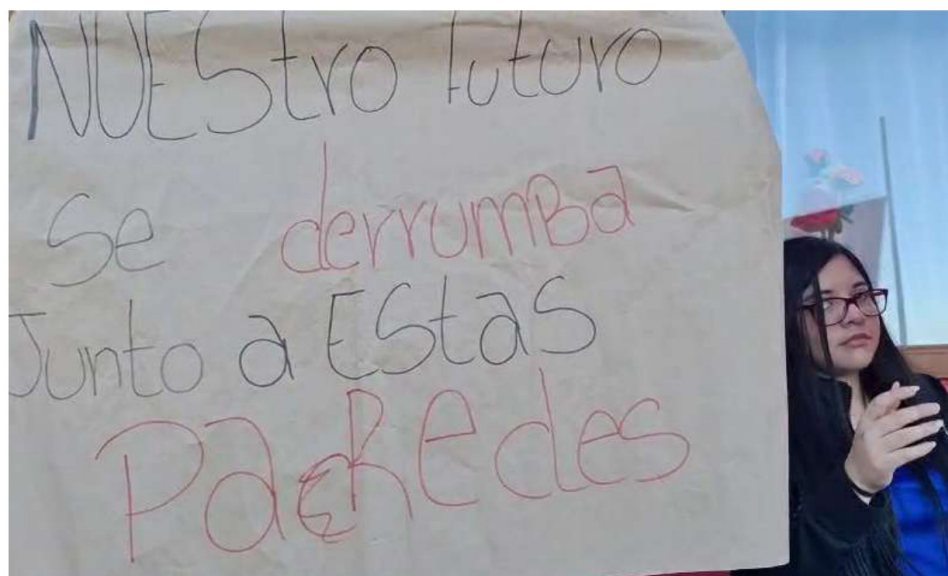 NUEStro futuro
Se derrumBa
Junto a EStaS
PaREdes